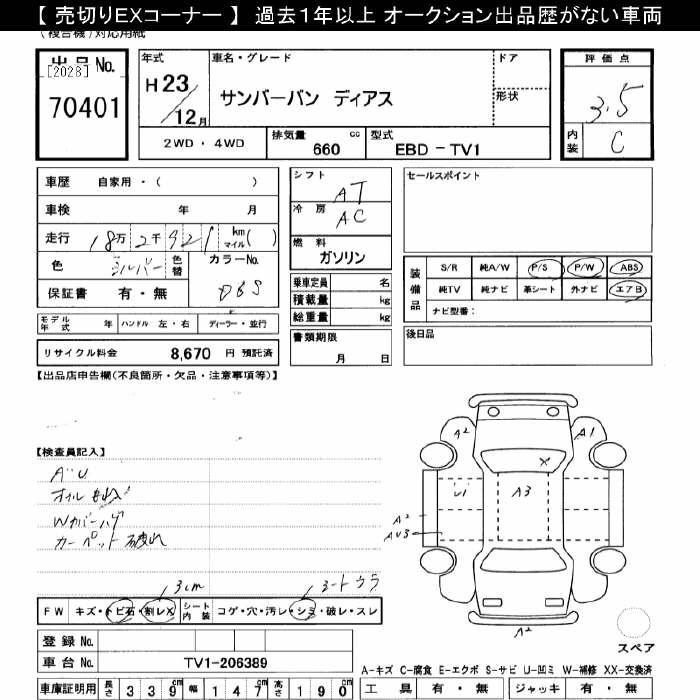 【 売切りEXコーナー 】 過去1年以上 オークション出品歴がない車両
(複合機)対応用紙
出品No.
[2028]
70401
年式
H 23
12月
車名・グレード
サンバーバン ディアス
ドア
形状
評価点
3.5
内装
C
2WD ・ 4WD
排気量
cc
660
型式
EBD - TV1
車歴 自家用・( )
車検 年 月
走行 18万 2千 921 km マイル ( )
色 シルバー 色替
カラーNo.
DBS
保証書 有・無
モデル年式 年 ハンドル 左・右 ディーラー・並行
リサイクル料金 8,670 円 預託済
シフト AT
冷房 AC
燃料 ガソリン
乗車定員 名
積載量 kg
総重量 kg
書類期限
月 日
セールスポイント
装備品
S/R 純A/W P/S P/W ABS
純TV 純ナビ 革シート 外ナビ エアB
ナビ型番:
後日品
【出品店申告欄(不良箇所・欠品・注意事項等)】
【検査員記入】
A・U
オイルもれ
Wカバーハゲ
カーペット破れ
3cm
シートウラ
FW キズ・トビ石・割レX シート内装 コゲ・穴・汚レ・シミ・破レ・スレ
A2
A1
U1
A3
A2
AU3
A2
X
スペア
登録 No.
車台 No. TV1-206389
A-キズ C-腐食 E-エクボ S-サビ U-凹ミ W-補修 XX-交換済
車庫証明用 長さ 339cm 幅 147cm 高さ 190cm
工具 有・無 ジャッキ 有・無